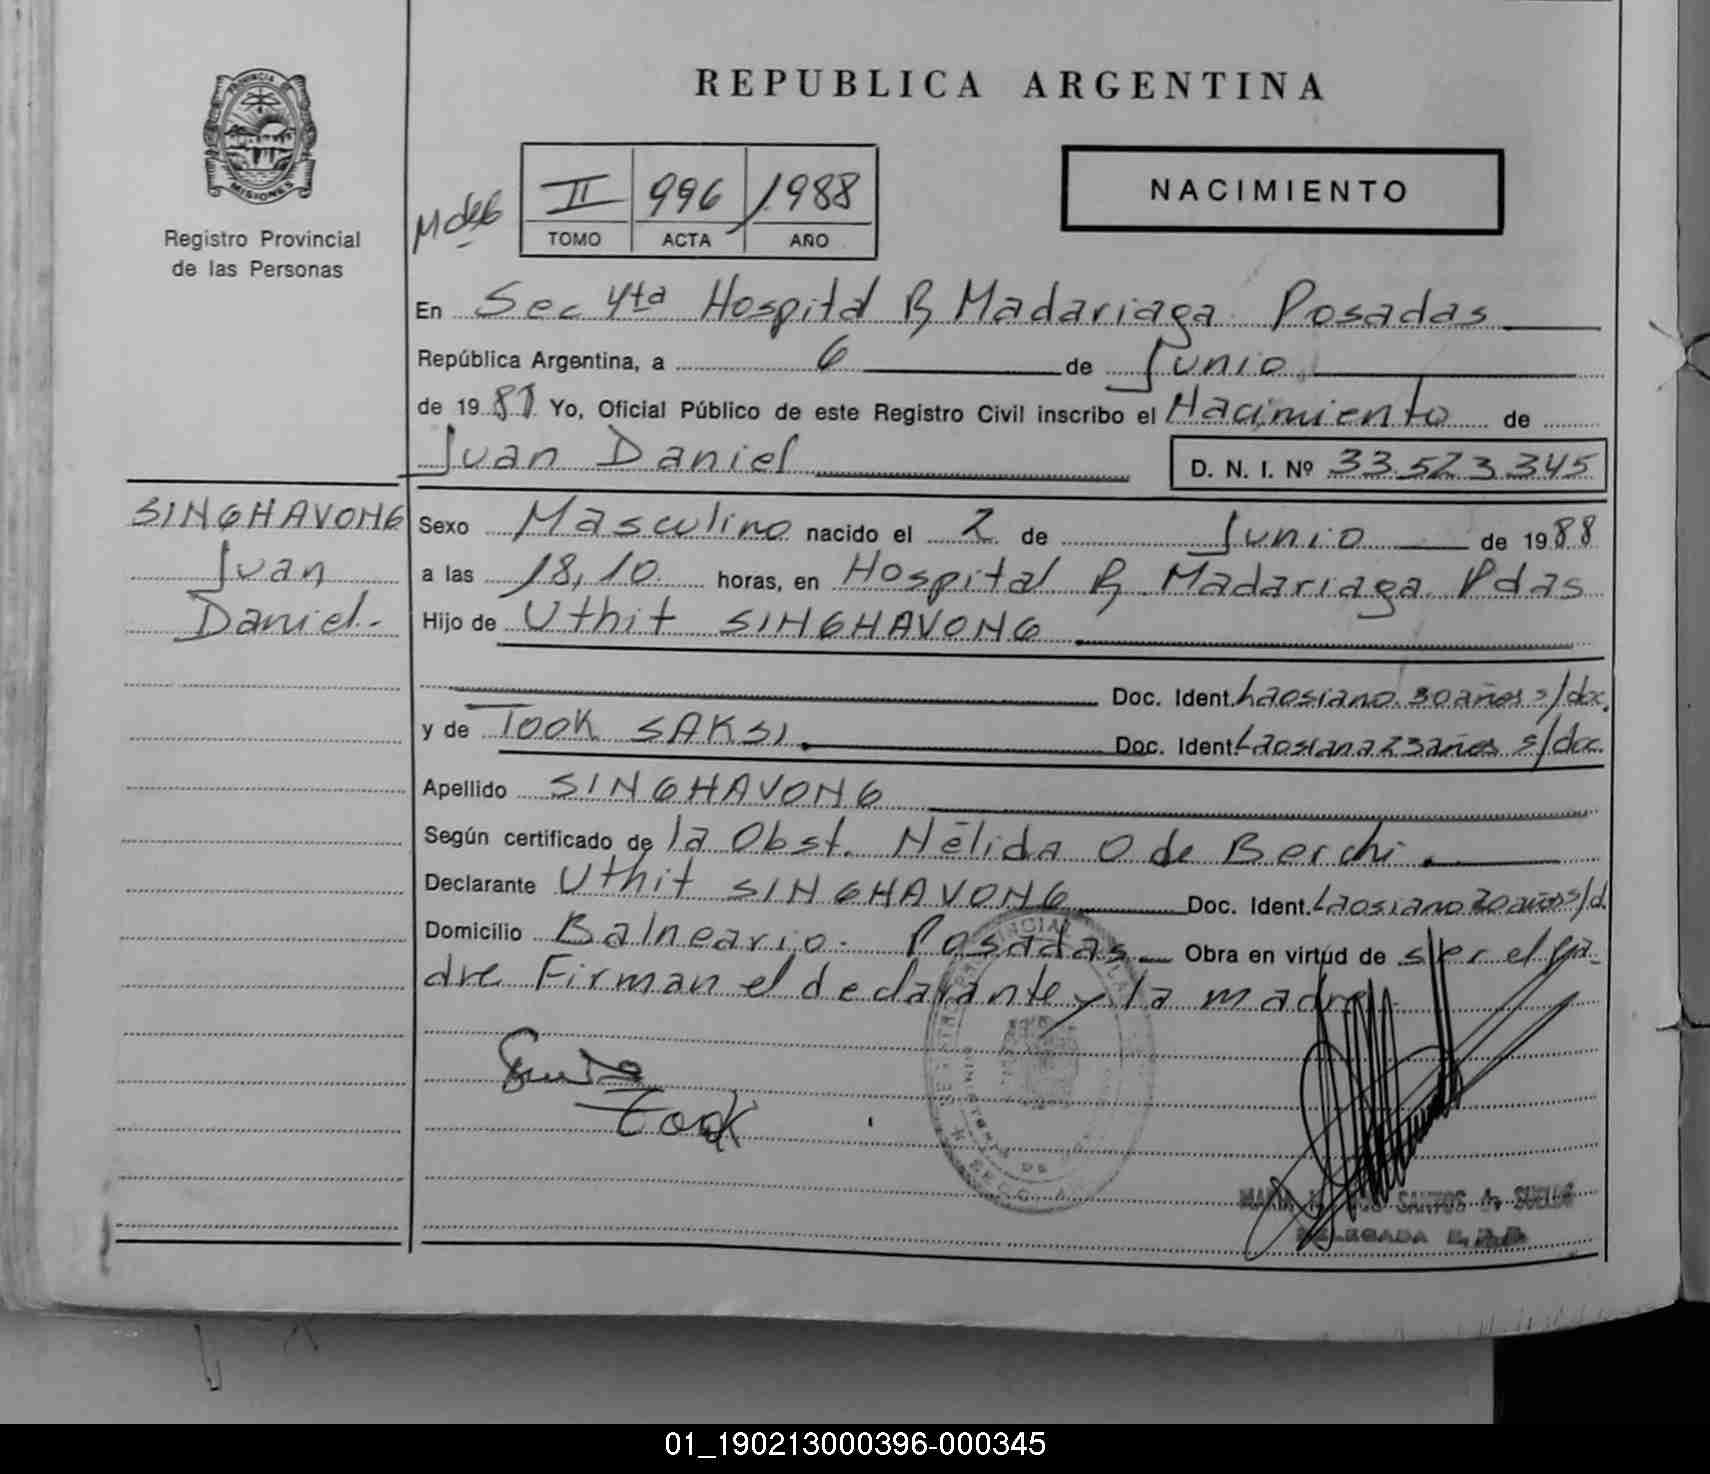 REPUBLICA ARGENTINA
PROVINCIA DE
MISIONES
Registro Provincial
de las Personas
II 996 1988
TOMO ACTA AÑO
NACIMIENTO
En Sec 4ta Hospital R Madariaga Posadas
República Argentina, a 6 de Junio
de 19 Yo, Oficial Público de este Registro Civil inscribo el Nacimiento de
Juan Daniel
D. N. I. Nº 33.523.345
SINGHAVONG
Juan
Daniel.-
Sexo Masculino nacido el 2 de Junio de 1988
a las 18,10 horas, en Hospital R. Madariaga Pdas
Hijo de Uthit SINGHAVONG
Doc. Ident. Laosiano 30 años s/doc.
y de Took SAKSI. Doc. Ident. Laosiana 23 años s/doc.
Apellido SINGHAVONG
Según certificado de la Obst. Nélida O de Berchi.
Declarante Uthit SINGHAVONG Doc. Ident. Laosiano 30 años s/d.
Domicilio Balneario. Posadas Obra en virtud de ser el pa-
dre Firman el declarante y la madre
Took
SANTOS de
DELEGADA
01_190213000396-000345